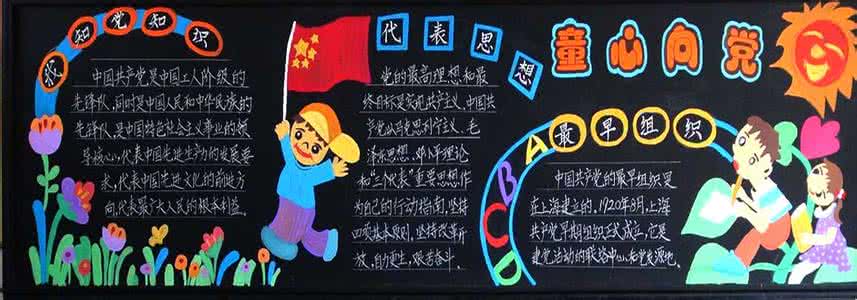 我知党知识
中国共产党是中国工人阶级的
先锋队,同时是中国人民和中华民族的
先锋队,是中国特色社会主义事业的领
导核心,代表中国先进生产力的发展要
求,代表中国先进文化的前进方
向,代表最广大人民的根本利益。
代表思想
党的最高理想和最
终目标是实现共产主义,中国共
产党以马克思列宁主义、毛
泽东思想、邓小平理论
和“三个代表”重要思想作
为自己的行动指南,坚持
四项基本原则,坚持改革开
放,自力更生,艰苦奋斗。
童心向党
ABCD
最早组织
中国共产党的最早组织是
在上海建立的,1920年8月,上海
共产党早期组织正式成立,它是
建党活动的联络中心和党发源地。